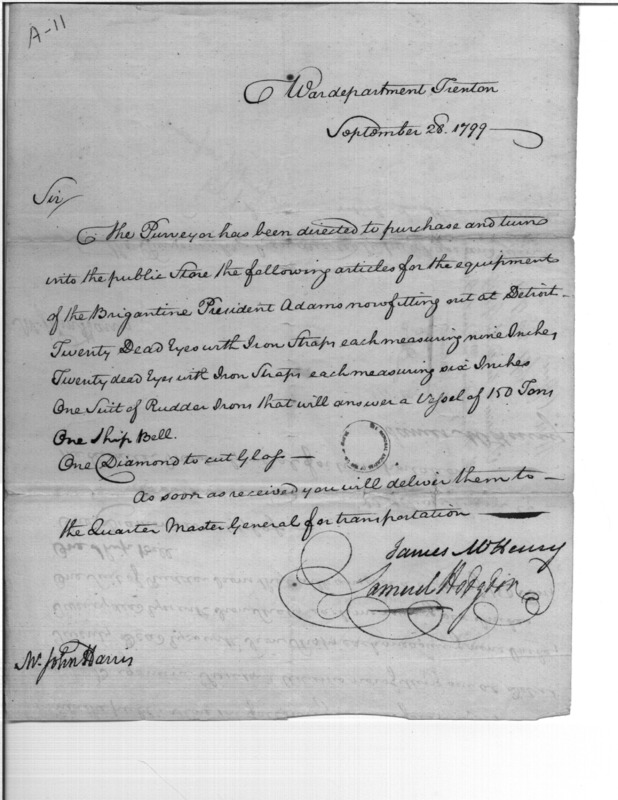 A-11
War department Trenton
September 28. 1799
Sir
the Purveyor has been directed to purchase and turn
into the public Store the following articles for the equipment
of the Brigantine President Adams now fitting out at Detroit
Twenty Dead Eyes with Iron Straps each measuring nine Inches,
Twenty dead Eyes with Iron Straps each measuring six Inches
One Suit of Rudder Irons that will answer a Vessel of 150 Tons
One Ship Bell.
One Diamond to cut Glass
As soon as received you will deliver them to
the Quarter Master General for transportation
James McHenry
Samuel Hodgdon
Mr. John Harris